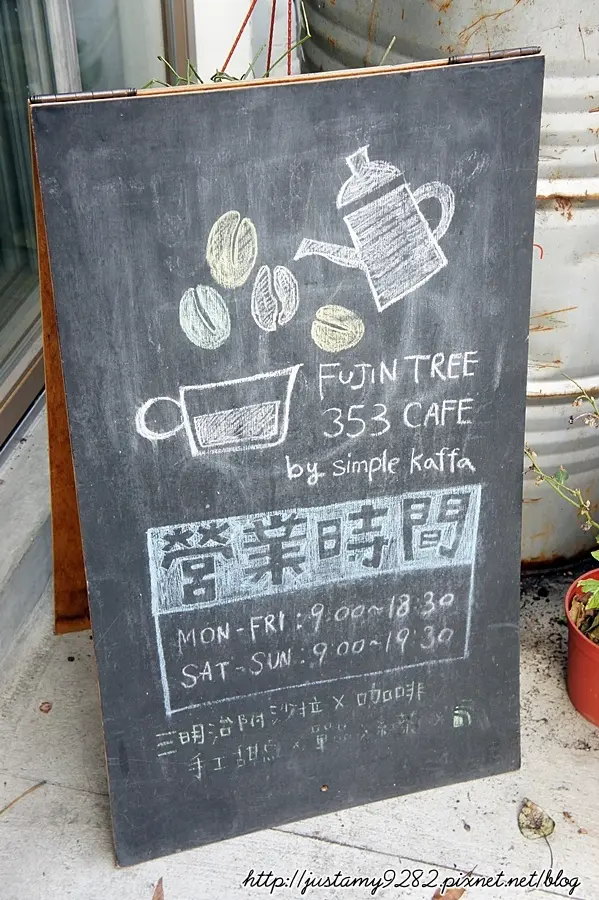 FUJIN TREE
353 CAFE
by simple kaffa
營業時間
MON-FRI:9:00~18:30
SAT-SUN:9:00~19:30
三明治附沙拉×咖啡
手工甜點×
http://justamy9282.pixnet.net/blog